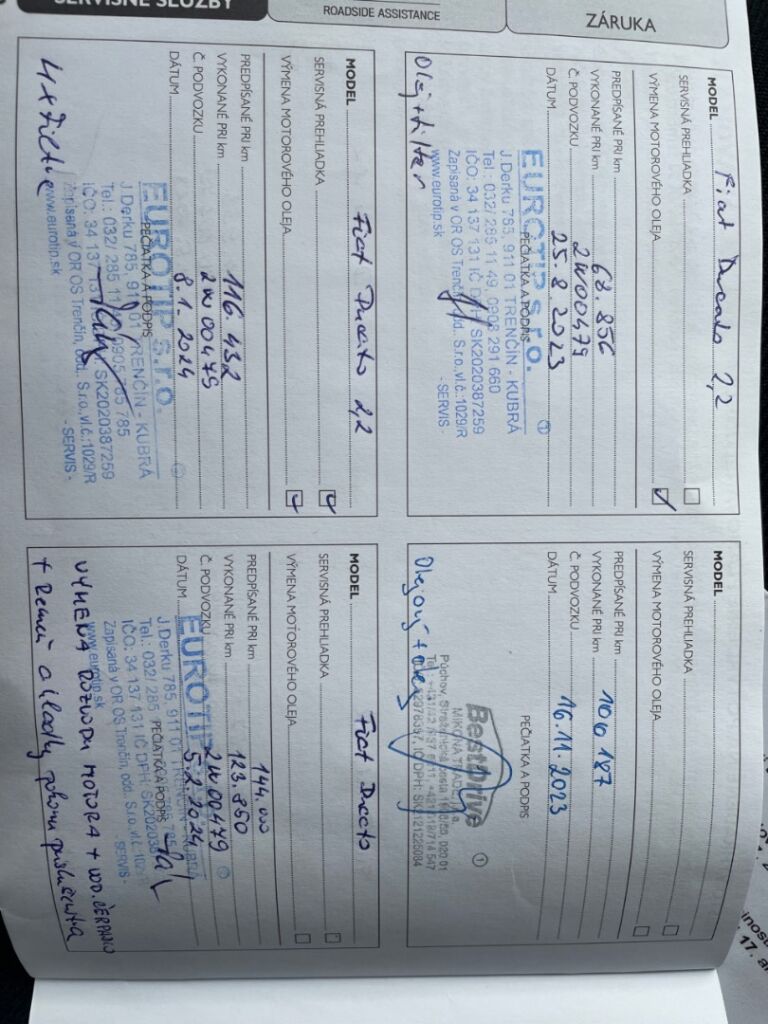 SERVISNÉ SLUŽBY
ROADSIDE ASSISTANCE
ZÁRUKA
MODEL Fiat Ducato 2,2
SERVISNÁ PREHLIADKA
VÝMENA MOTOROVÉHO OLEJA
PREDPÍSANÉ PRI km
VYKONANÉ PRI km 68.856
Č. PODVOZKU 2W00479
DÁTUM 25.8.2023
PEČIATKA A PODPIS
EUROTIP s.r.o.
J.Derku 785, 911 01 TRENČÍN - KUBRÁ
Tel.: 032/ 285 11 49, 0908 291 660
IČO: 34 137 131 IČ DPH: SK2020387259
Zapísaná v OR OS Trenčín, odd. S.r.o.,vl.č.:1029/R
www.eurotip.sk - SERVIS -
Olej + filter
MODEL
SERVISNÁ PREHLIADKA
VÝMENA MOTOROVÉHO OLEJA
PREDPÍSANÉ PRI km
VYKONANÉ PRI km 106 187
Č. PODVOZKU
DÁTUM 16.11.2023
PEČIATKA A PODPIS
BestDrive
Púchov, 020 01
Olejový +
MODEL Fiat Ducato 2,2
SERVISNÁ PREHLIADKA
VÝMENA MOTOROVÉHO OLEJA
PREDPÍSANÉ PRI km
VYKONANÉ PRI km 116.432
Č. PODVOZKU 2W00479
DÁTUM 8.1.2024
PEČIATKA A PODPIS
EUROTIP s.r.o.
J.Derku 785, 911 01 TRENČÍN - KUBRÁ
Tel.: 032/ 285 11 0905 785
IČO: 34 137 131 SK2020387259
Zapísaná v OR OS Trenčín, odd. S.r.o.,vl.č.:1029/R
www.eurotip.sk - SERVIS -
4x filtre
MODEL Fiat Ducato
SERVISNÁ PREHLIADKA
VÝMENA MOTOROVÉHO OLEJA
PREDPÍSANÉ PRI km 144.000
VYKONANÉ PRI km 123.850
Č. PODVOZKU 2W00479
DÁTUM 5.2.2024
PEČIATKA A PODPIS
EUROTIP
J.Derku 785, 911 01 TRENČÍN - KUBRÁ
Tel.: 032/ 285
IČO: 34 137 131 IČ DPH: SK202038
Zapísaná v OR OS Trenčín, odd. S.r.o.,vl.č.:
www.eurotip.sk - SERVIS -
VÝMENA ROZVODU MOTORA + VOD. ČERPADLO
+ remeň a kladky pohonu príslušenstva